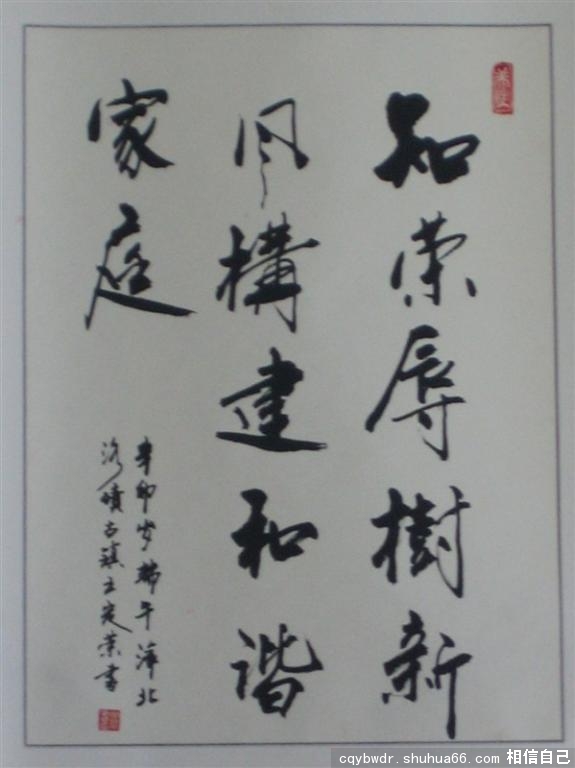 知荣辱樹新
风構建和谐
家庭
辛卯岁端午萍北
洛碛古鎮 定荣书
cqybwdr.shuhua66.com 相信自己